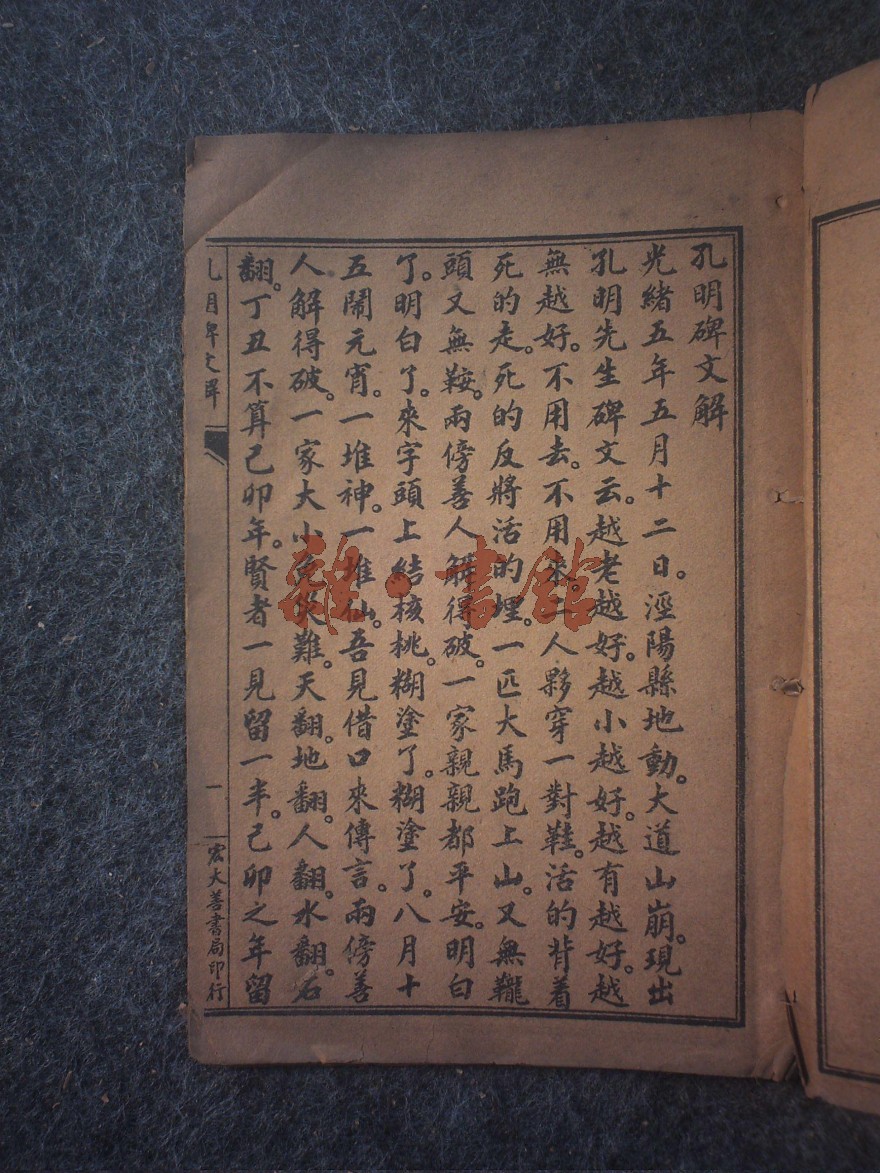 孔明碑文解
光緒五年五月十二日。涇陽縣地動。大道山崩。現出
孔明先生碑文云。越老越好。越小越好。越有越好。越
無越好。不用去。不用來。二人夥穿一對鞋。活的背着
死的走。死的反將活的埋。一匹大馬跑上山。又無韁
頭又無鞍。兩傍善人解得破。一家親親都平安。明白
了。明白了。來字頭上結核桃。糊塗了。糊塗了。八月十
五鬧元宵。一堆神。一堆仙。吾見借口來傳言。兩傍善
人解得破。一家大小免災難。天翻。地翻。人翻。水翻。石
翻。丁丑不算己卯年。賢者一見留一半。己卯之年留
孔明碑文解
一
宏大善書局印行
雜·書館